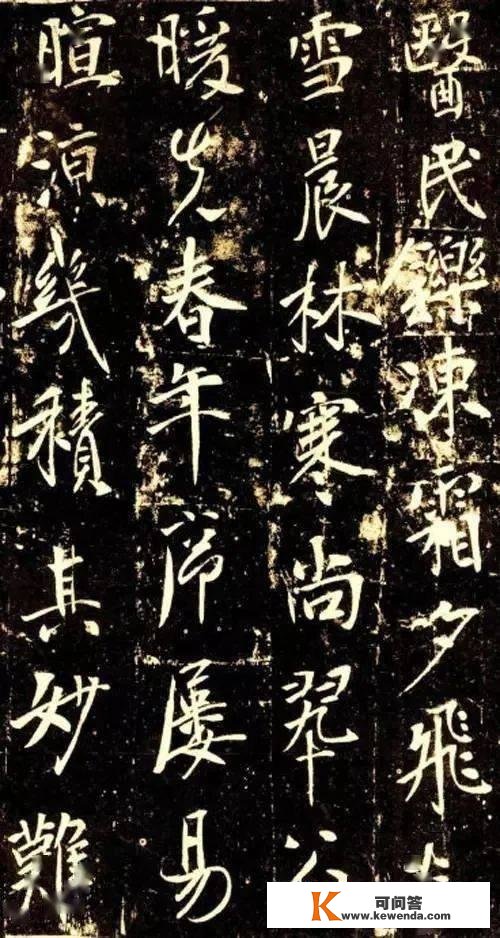 醫民鑠凍霜夕飛
雪晨林寒尚翠
暖先春年序屢易
暄涼幾積其妙難
K 可问答
www.kewenda.com